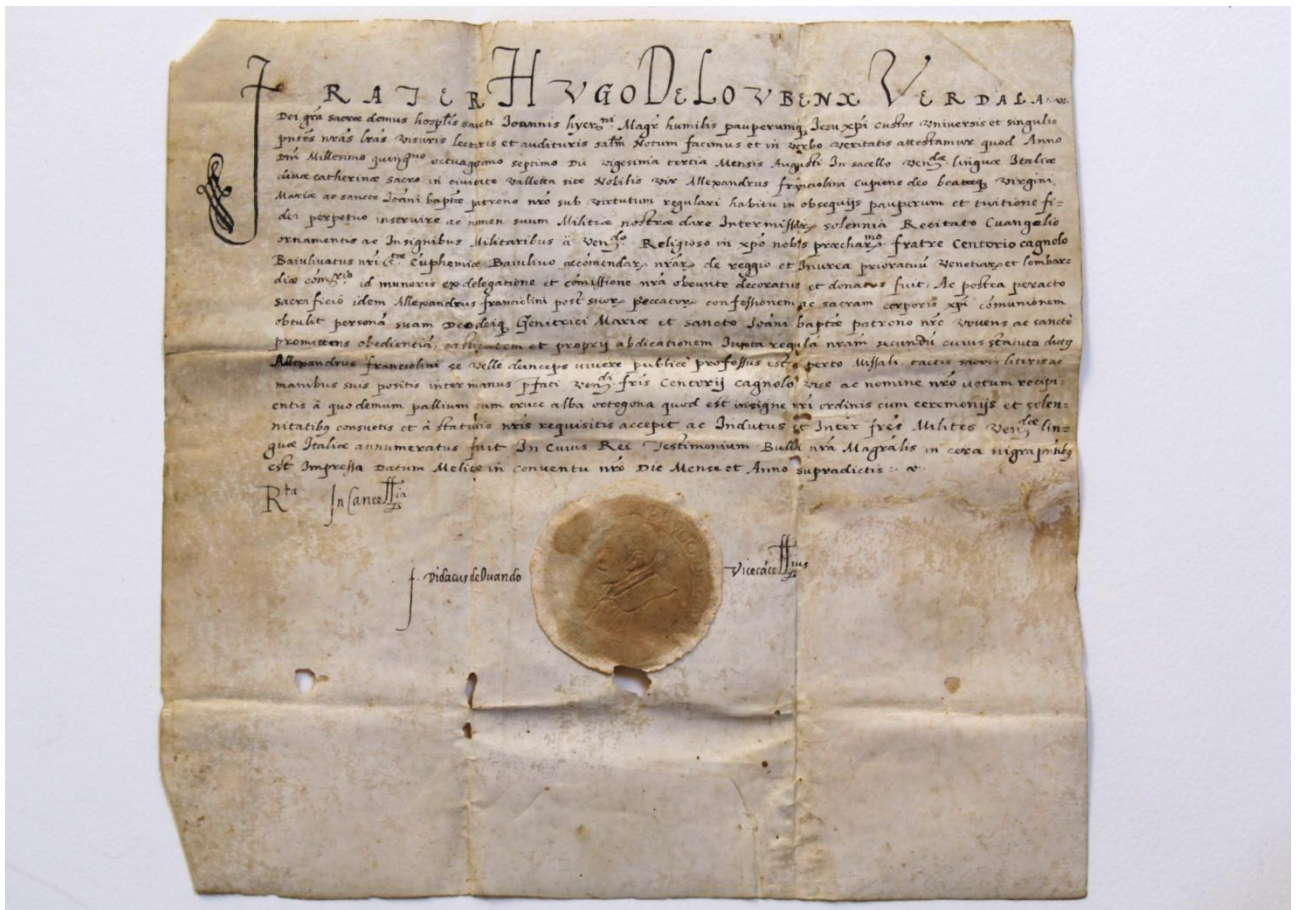 FRATER HVGO DE LOVBENX VERDALA
Dei grã sacræ domus hosplis sancti Joannis hyerni Magr humilis pauperumq Jesu xpi custos Vniversis et singulis
pntes nras lras visuris lecturis et audituris salm Notum facimus et in verbo veritatis attestamur quod Anno
Dni Millesimo quingmo octuagesimo septimo Die vigesima tertia Mensis Augusti In sacello Vendæ linguæ Italiæ
divæ catherinæ sacro in civitate valletta site Nobilis vir Allexandrus franciolini cupiens deo beatæq Virgini
Mariæ ac sancto Joãni baptæ patrono nrõ sub virtutum regulari habitu in obsequijs pauperum et tuitione fi-
dei perpetuo inservire ac nomen suum Militiæ nostræ dare Inter missar solennia Recitato Euangelio
ornamentis ac Insignibus Militaribus à Vendo Religioso in xpõ nobis præcharmo fratre Centorio cagnolo
Baiulivatus nri Stæ Euphemiæ Baiulivo accomendar nrar de reggio et Inurea prioratuũ Venetiar et lombar-
diæ comrio id muneris ex delegatione et cõmissione nrã obeunte decoratus et donatus fuit. Ac postea peracto
sacrificio idem Allexandrus franciolini post suor peccator confessionem ac sacram corporis xpi cõmunionem
obtulit personã suam Deo deiq Genitrici Mariæ et sancto Joãni baptæ patrono nrõ vovens ac sanctè
promittens obedientiã, castitatem et proprij abdicationem Iuxta regulã nram secundũ cuius statuta dictq
Allexandrus franciolini se velle deinceps vivere publicè professus est perto Missali, tactis sacris literis ac
manibus suis positis inter manus pfati Vendi fris Centorij cagnolo vice ac nomine nrõ votum recipi-
entis à quo demum pallium cum cruce alba octogona quod est insigne nri ordinis cum ceremonijs et solen-
nitatibq consuetis et à statutis nris requisitis accepit ac Indutus et Inter fres Milites Vendæ lin-
guæ Italiæ annumeratus fuit In Cuius Rei Testimonium Bulla nrã Magralis in cera nigra pntibq
est Impressa Datum Melitæ in conventu nrõ Die Mense et Anno supradictis
Rta In Cancellia
f Didacus de Ovando Vicecãcellius